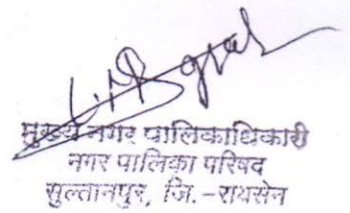 मुख्य नगर पालिकाधिकारी
नगर पालिका परिषद
सुल्तानपुर, जि.-रायसेन